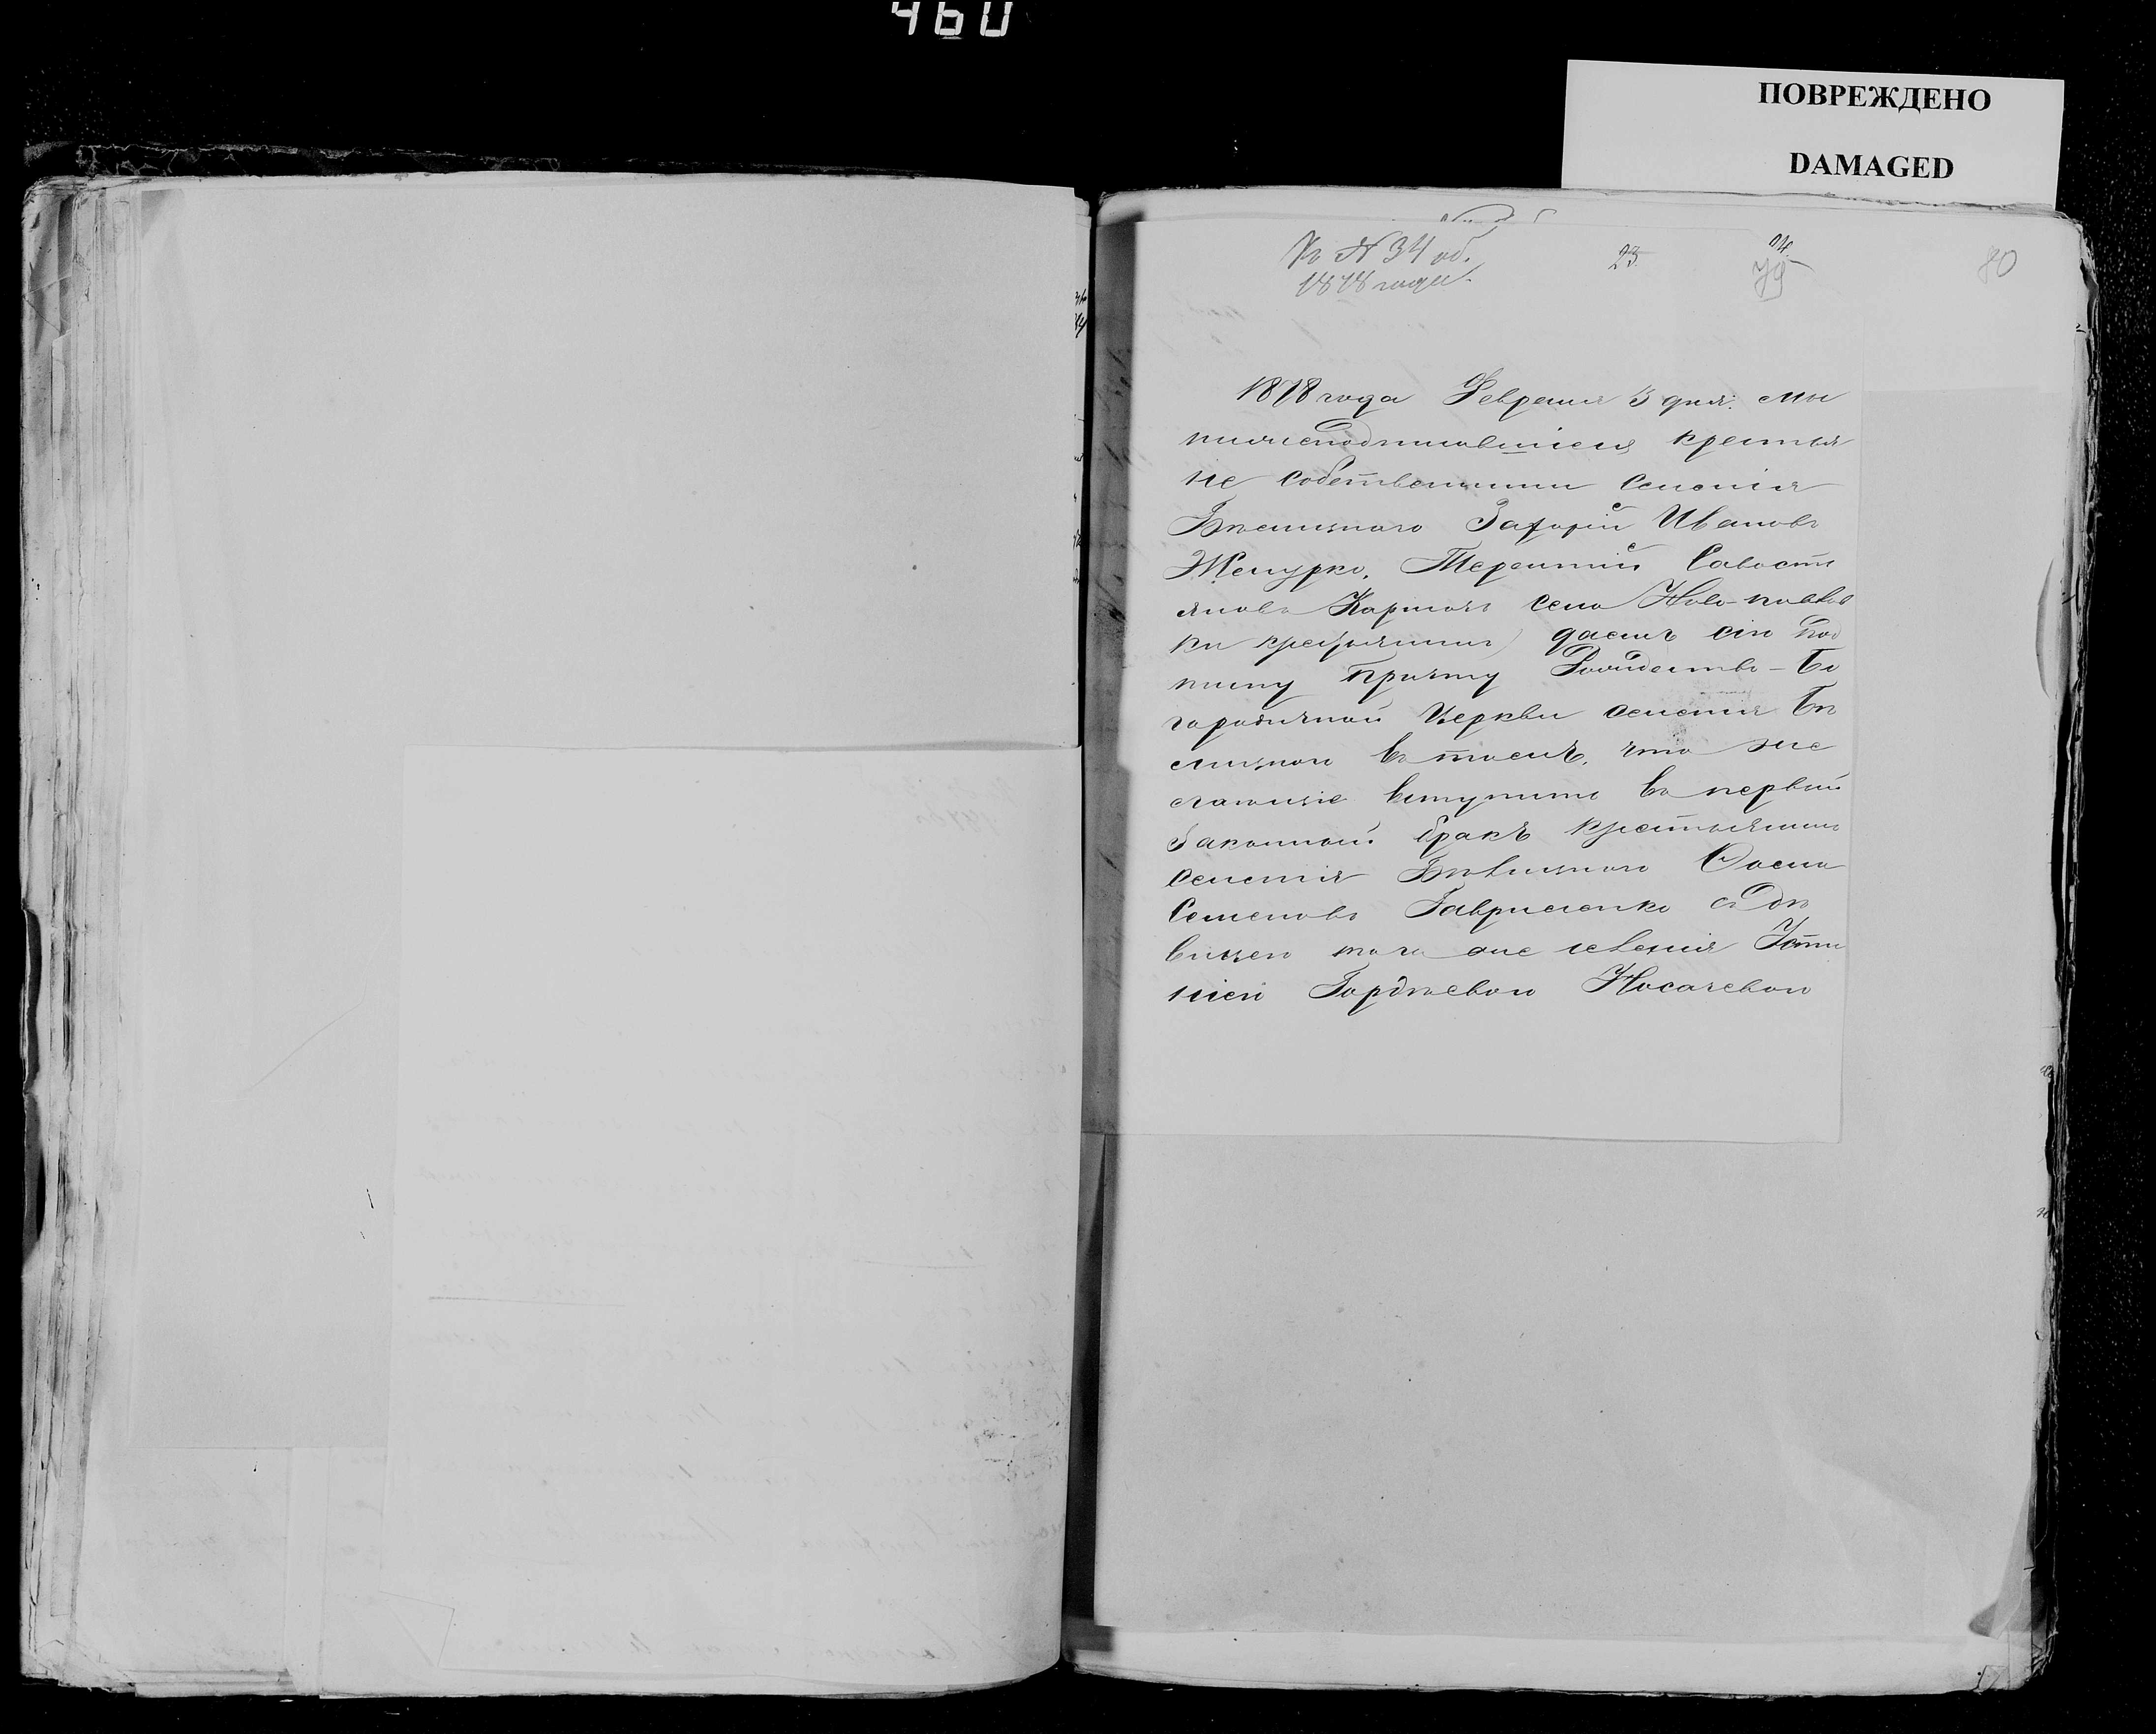 460
ПОВРЕЖДЕНО
DAMAGED
Къ № 34 об.
1878 года.
23
04
79
80
1878 года Февраля 5 дня. мы
нижеподписавшіеся крестья
не собственники селенія
Захарій Ивановъ
Терентій Савостi
яновъ села Ново-павлов
ки крестьянинъ даемъ сію под
писку Причту Рождество-Бо
городичной Церкви селенія Бѣ
въ томъ, что же
лающіе вступить въ первый
законной бракъ крестьянинъ
селенія
Семеновъ Гавриленко съ дѣ
вицею того же селенія Усти
ніею Гордѣевою Носачевою